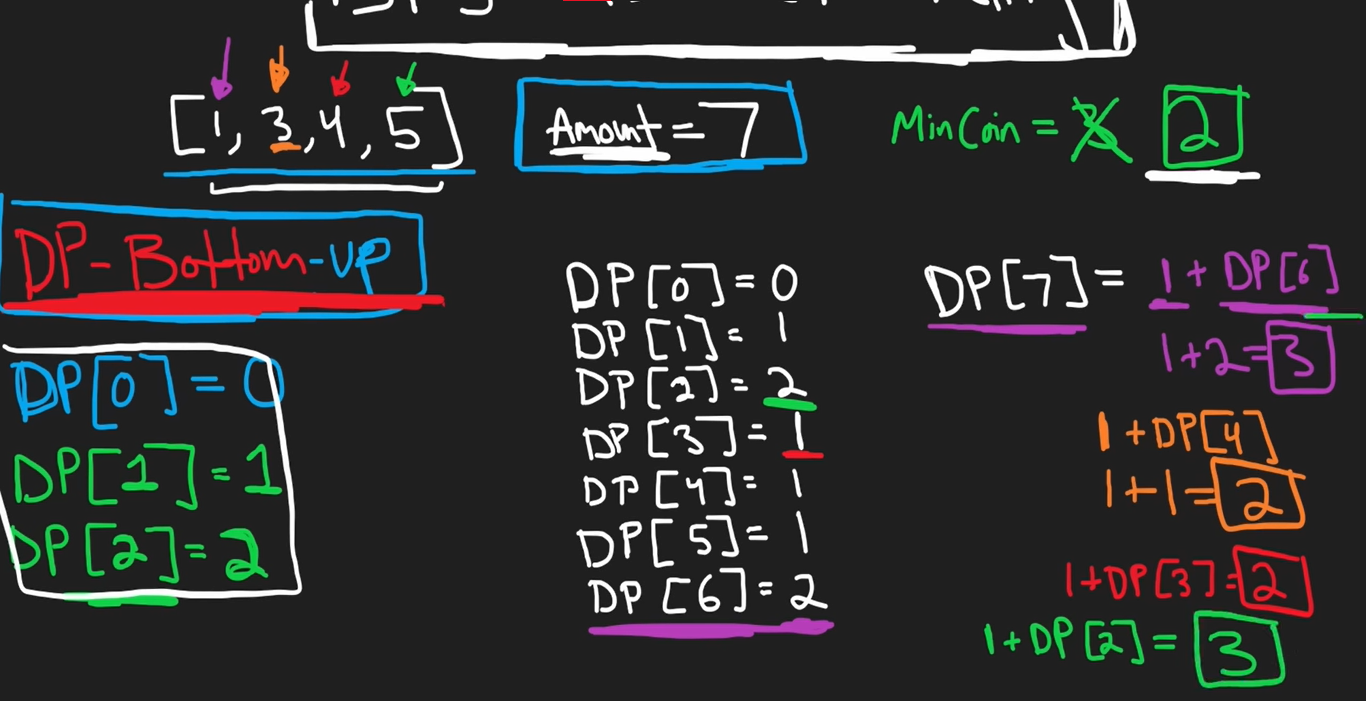 [1, 3, 4, 5]
Amount = 7
MinCoin = 3 2
DP - Bottom - UP
DP[0] = 0
DP[1] = 1
DP[2] = 2
DP[0] = 0
DP[1] = 1
DP[2] = 2
DP[3] = 1
DP[4] = 1
DP[5] = 1
DP[6] = 2
DP[7] = 1 + DP[6]
1 + 2 = 3
1 + DP[4]
1 + 1 = 2
1 + DP[3] = 2
1 + DP[2] = 3